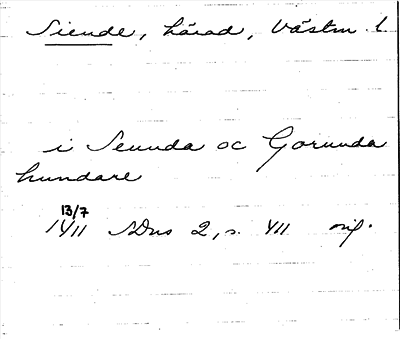 Siende, härad, Västm. l.
i Seunda oc Gorunda
hundare
13/7
1411 SDns 2, s. 411 orig.